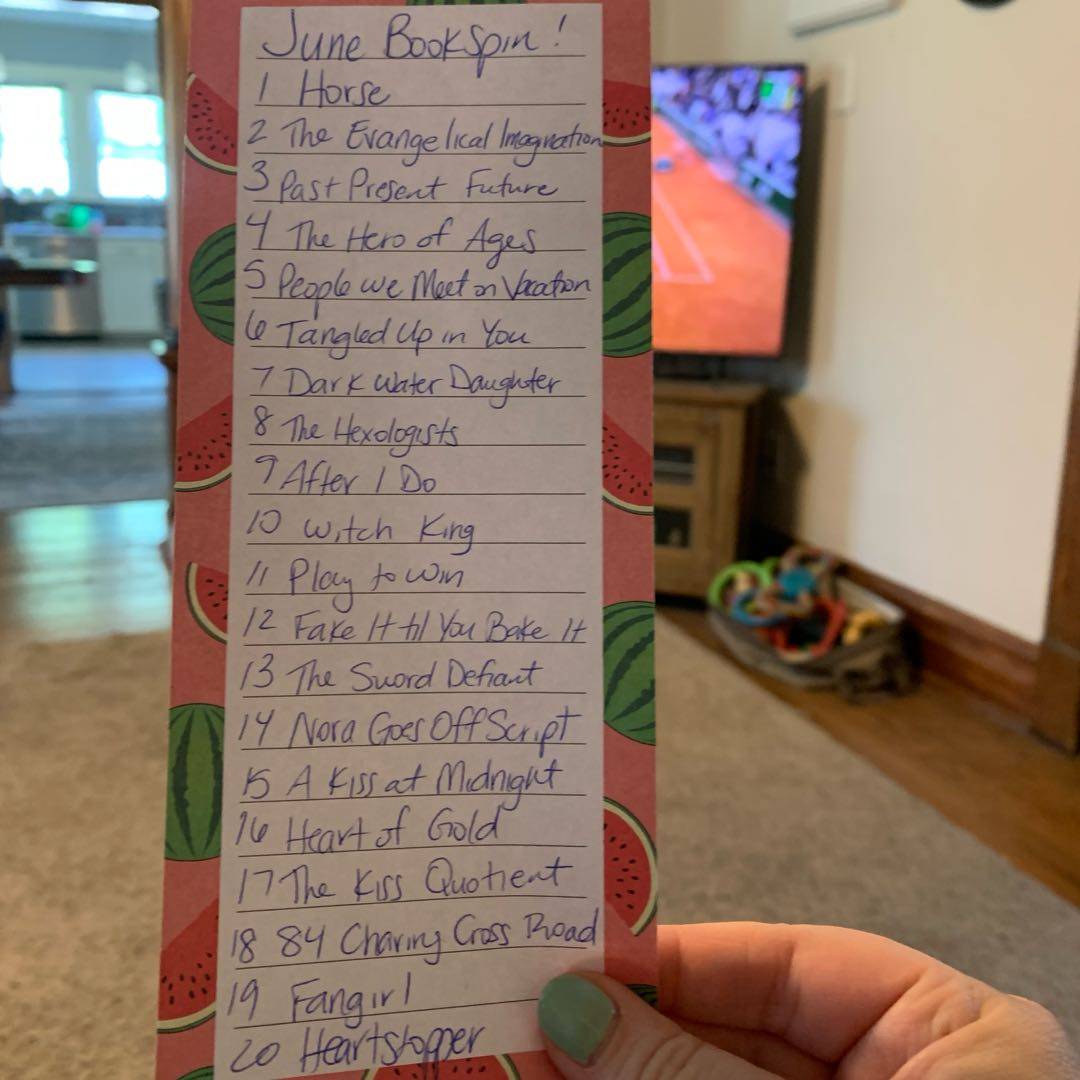 June BookSpin!
1 Horse
2 The Evangelical Imagination
3 Past Present Future
4 The Hero of Ages
5 People we Meet on Vacation
6 Tangled Up in You
7 Dark Water Daughter
8 The Hexologists
9 After I Do
10 Witch King
11 Play to Win
12 Fake It til You Bake It
13 The Sword Defiant
14 Nora Goes Off Script
15 A Kiss at Midnight
16 Heart of Gold
17 The Kiss Quotient
18 84 Charing Cross Road
19 Fangirl
20 Heartstopper